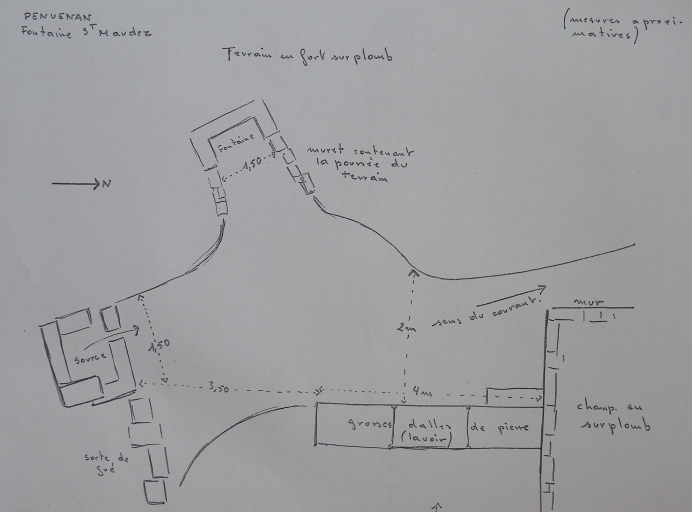 PENVENAN
Fontaine St Maudez
(mesures aproxi-
matives)
Terrain en fort surplomb
Fontaine
1,50
muret contenant
la poussée du
terrain
N
mur
sens du courant.
2m
source
1,50
3,50
4m
champ en
surplomb
grosses dalles de pierre
(lavoir)
sorte de
gué